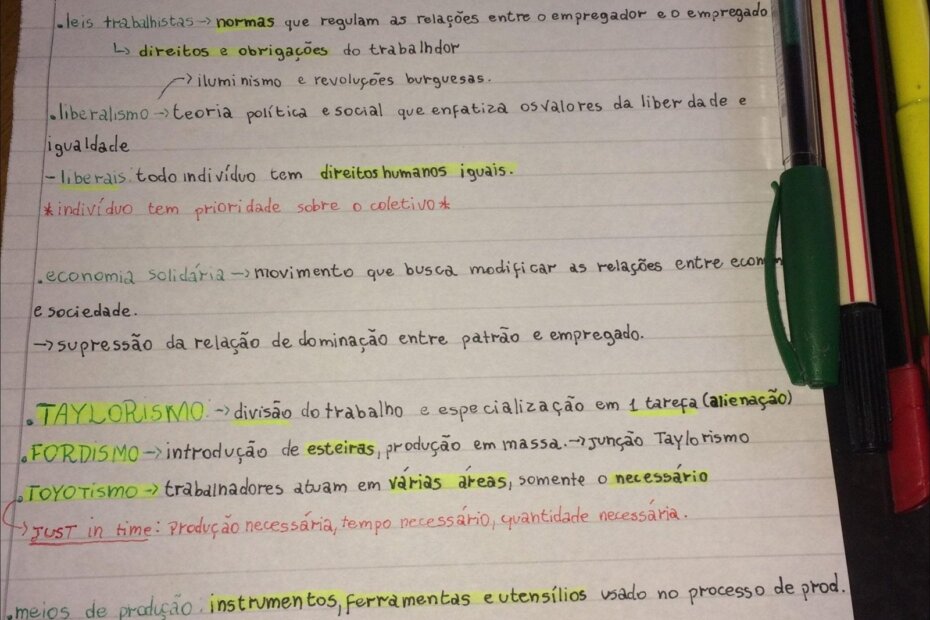 .leis trabalhistas → normas que regulam as relações entre o empregador e o empregado
↳ direitos e obrigações do trabalhdor
→ iluminismo e revoluções burguesas.
.liberalismo → teoria política e social que enfatiza os valores da liberdade e
igualdade
- liberais: todo indivíduo tem direitos humanos iguais.
*indivíduo tem prioridade sobre o coletivo*
.economia solidária → movimento que busca modificar as relações entre econom
e sociedade.
→ supressão da relação de dominação entre patrão e empregado.
.TAYLORISMO: → divisão do trabalho e especialização em 1 tarefa (alienação)
.FORDISMO → introdução de esteiras, produção em massa. → junção Taylorismo
.TOYOTISMO → trabalhadores atuam em várias áreas, somente o necessário
↳ JUST in time: Produção necessária, tempo necessário, quantidade necessária.
.meios de produção: instrumentos, ferramentas e utensílios usado no processo de prod.